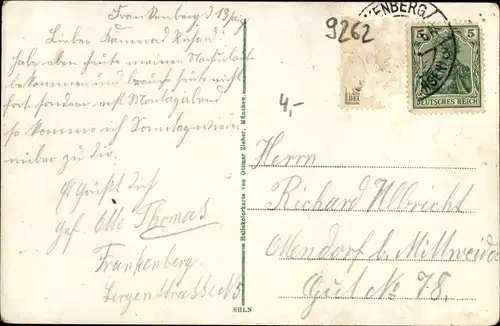 Frankenberg d. 13
Lieber Kamerad Richard
habe eben heute meinen
bekommen und brauche heute nicht
fort sondern erst Montagabend
so komme ich Sonntag wieder
nüber zu Dir.
Es Grüßt Dich
Gef. Otto Thomas
Frankenberg
9262
4,-
KENBERG
5 5
DEUTSCHES REICH
Hellekolorkarte von Ottmar Zieher, München
Herrn
Richard Ulbricht
Ottendorf b. Mittweida
Gut No 78.
SHLN